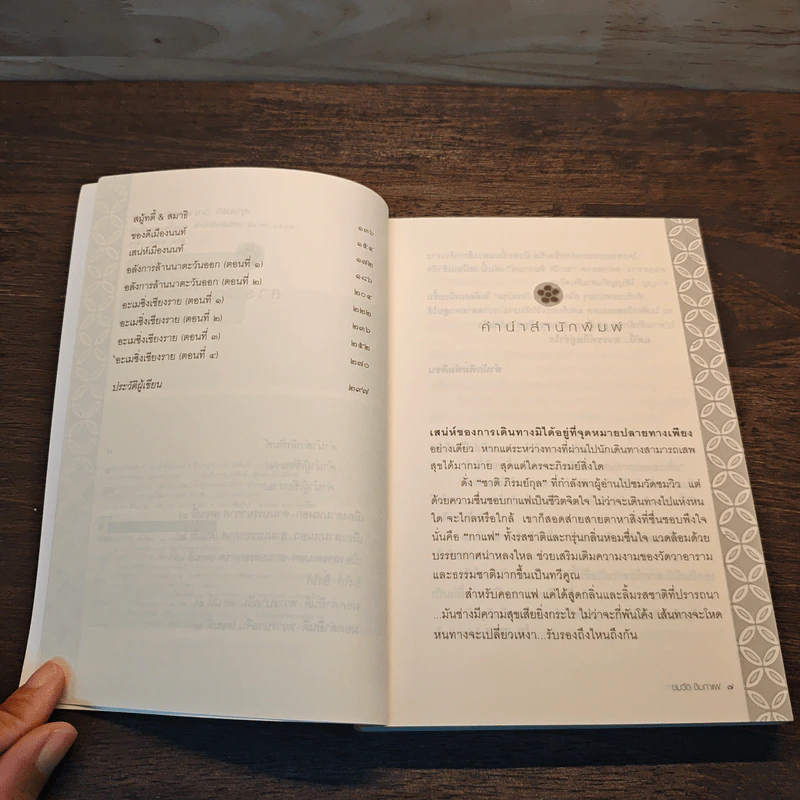 สมุ้ทตี้ & สมาธิ ๑๓๖
ของดีเมืองนนท์ ๑๕๔
เสน่ห์เมืองนนท์ ๑๗๒
อลังการล้านนาตะวันออก (ตอนที่ ๑) ๑๘๖
อลังการล้านนาตะวันออก (ตอนที่ ๒) ๒๐๔
อะเมซิ่งเชียงราย (ตอนที่ ๑) ๒๒๒
อะเมซิ่งเชียงราย (ตอนที่ ๒) ๒๓๖
อะเมซิ่งเชียงราย (ตอนที่ ๓) ๒๕๒
อะเมซิ่งเชียงราย (ตอนที่ ๔) ๒๗๐
ประวัติผู้เขียน ๒๙๗
คำนำสำนักพิมพ์
เสน่ห์ของการเดินทางมิได้อยู่ที่จุดหมายปลายทางเพียง
อย่างเดียว หากแต่ระหว่างทางที่ผ่านไปนักเดินทางสามารถเสพ
สุขได้มากมาย สุดแต่ใครจะภิรมย์สิ่งใด
ดั่ง “ชาติ ภิรมย์กุล” ที่กำลังพาผู้อ่านไปชมวัดชมวิว แต่
ด้วยความชื่นชอบกาแฟเป็นชีวิตจิตใจ ไม่ว่าจะเดินทางไปแห่งหน
ใด จะไกลหรือใกล้ เขาก็สอดส่ายสายตาหาสิ่งที่ชื่นชอบพึงใจ
นั่นคือ “กาแฟ” ทั้งรสชาติและกรุ่นกลิ่นหอมชื่นใจ แวดล้อมด้วย
บรรยากาศน่าหลงใหล ช่วยเสริมเติมความงามของวัดวาอาราม
และธรรมชาติมากขึ้นเป็นทวีคูณ
สำหรับคอกาแฟ แค่ได้สูดกลิ่นและลิ้มรสชาติที่ปรารถนา
...มันช่างมีความสุขเสียยิ่งกระไร ไม่ว่าจะกี่พันโค้ง เส้นทางจะโหด
หนทางจะเปลี่ยวเหงา...รับรองถึงไหนถึงกัน
ชมวัด ชิมกาแฟ ๗